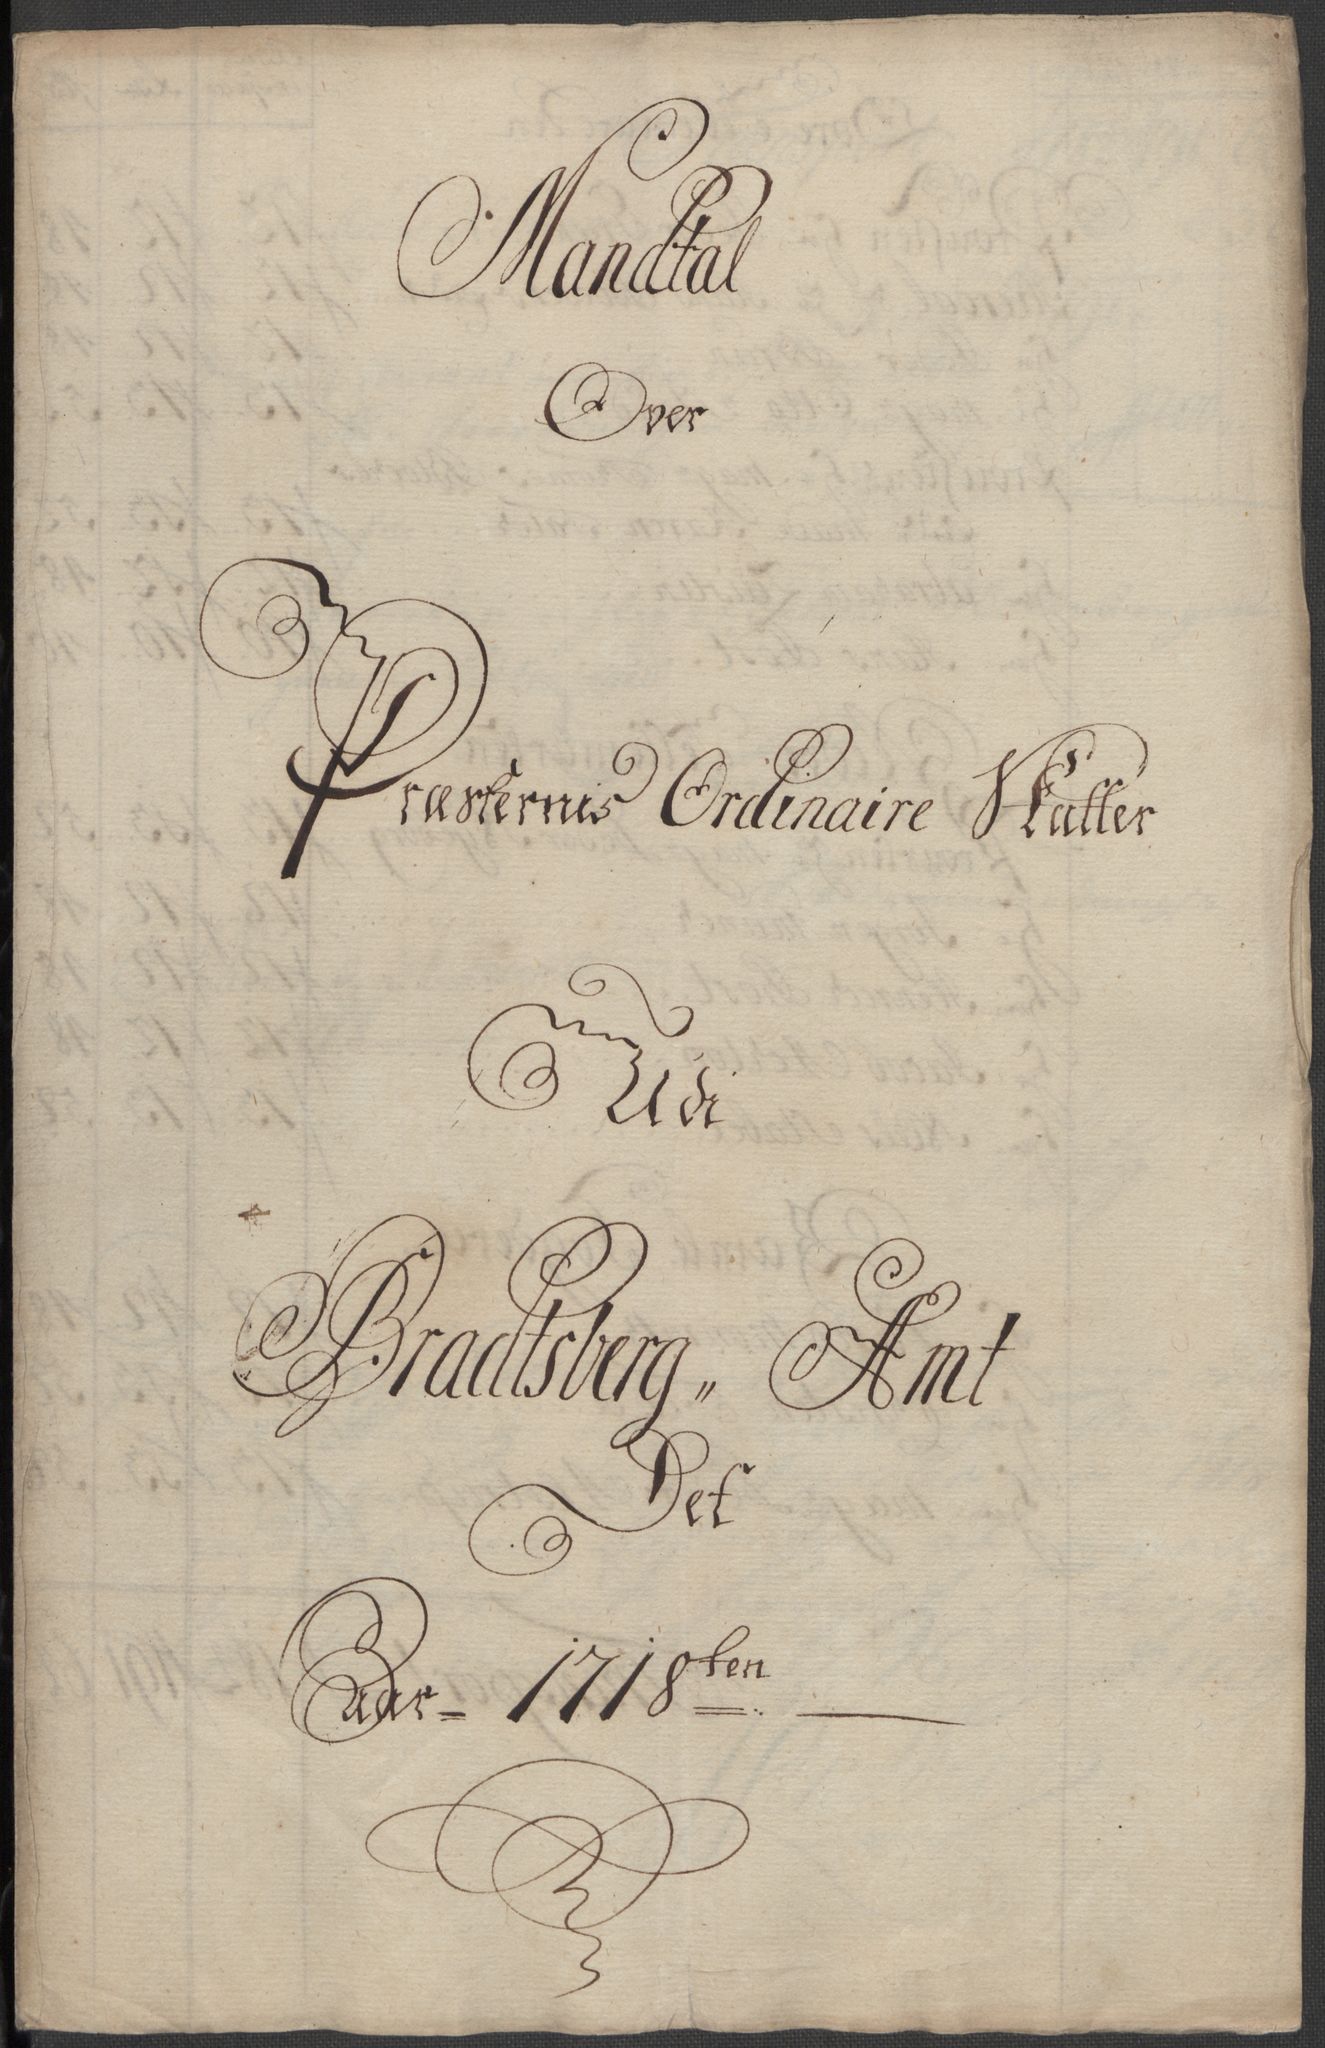 Mandtal
Over
Præsternis Ordinaire Skatter
Udi
Bradtsberg„ Amt
Det
Aar= 1718ten